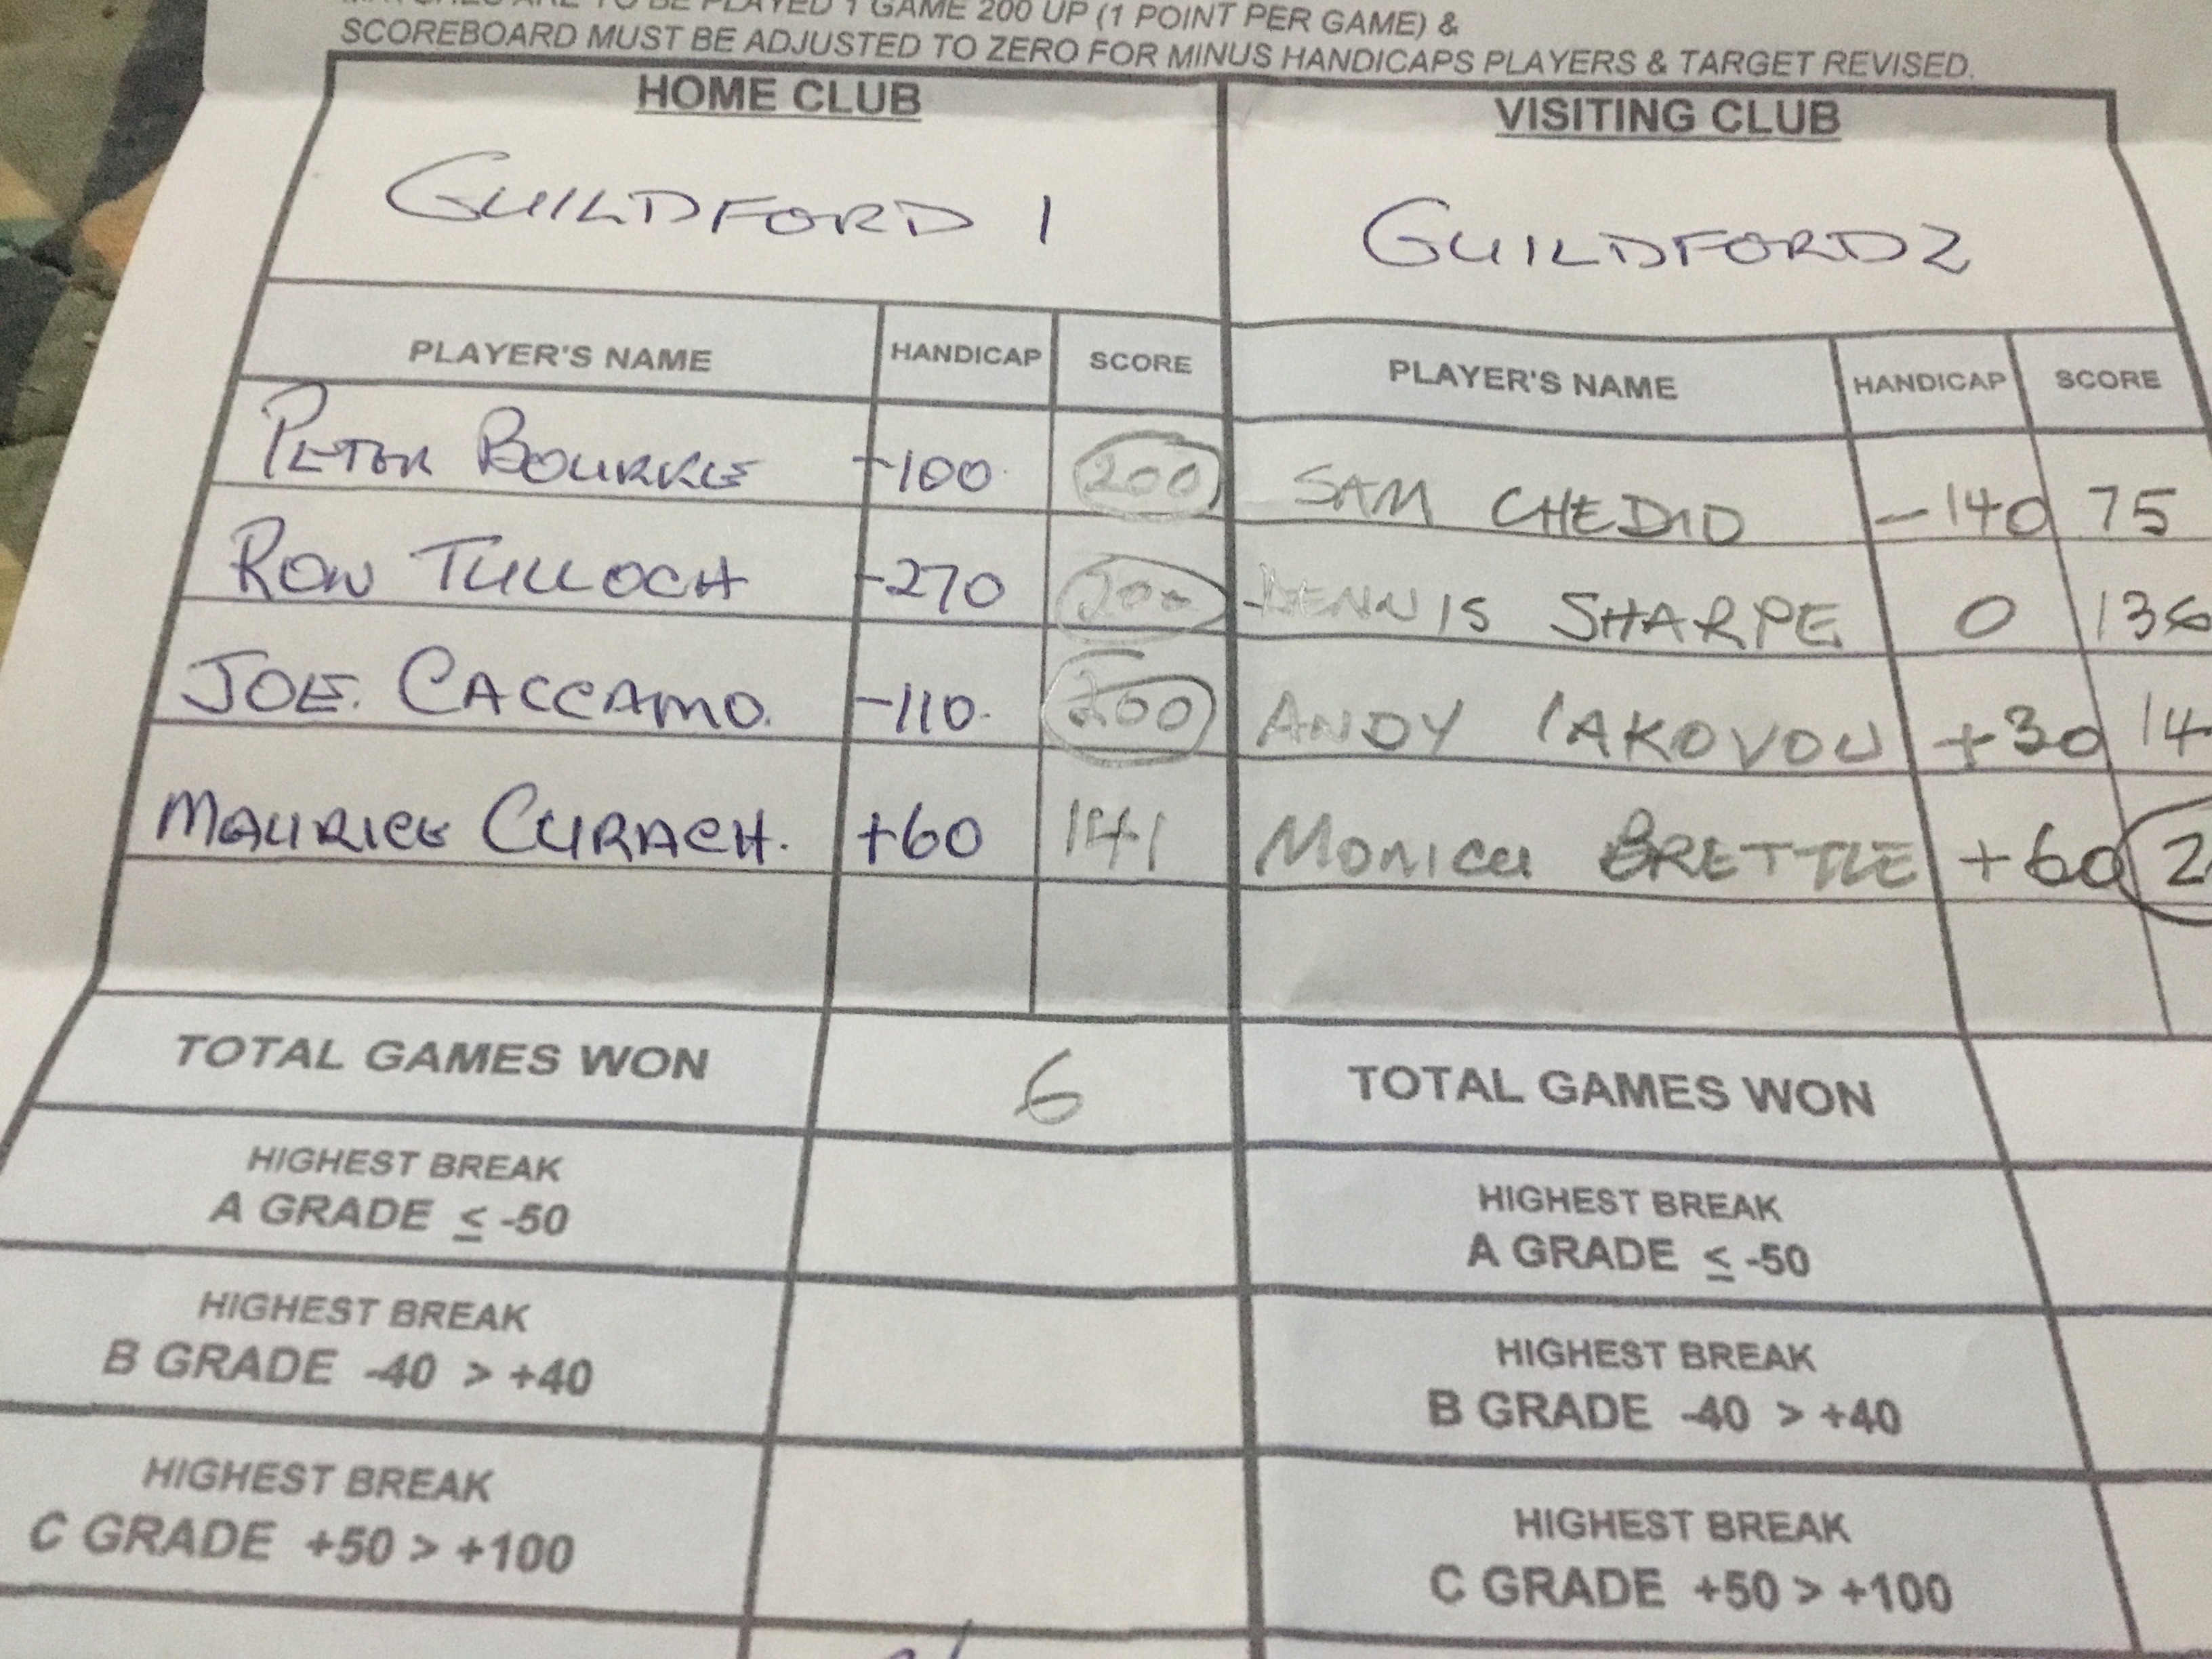 MATCHES ARE TO BE PLAYED 1 GAME 200 UP (1 POINT PER GAME) &
SCOREBOARD MUST BE ADJUSTED TO ZERO FOR MINUS HANDICAPS PLAYERS & TARGET REVISED.
HOME CLUB VISITING CLUB
GUILDFORD 1 GUILDFORD 2
PLAYER'S NAME HANDICAP SCORE PLAYER'S NAME HANDICAP SCORE
PETER BOURKE -100 200 SAM CHEDID -140 75
RON TULLOCH -270 200 DENNIS SHARPE 0 136
JOE. CACCAMO. -110 200 ANDY IAKOVOU +30 14
MAURICE CURACH. +60 141 MONICA BRETTLE +60 2
TOTAL GAMES WON 6 TOTAL GAMES WON
HIGHEST BREAK HIGHEST BREAK
A GRADE ≤ -50 A GRADE ≤ -50
HIGHEST BREAK HIGHEST BREAK
B GRADE -40 > +40 B GRADE -40 > +40
HIGHEST BREAK HIGHEST BREAK
C GRADE +50 > +100 C GRADE +50 > +100